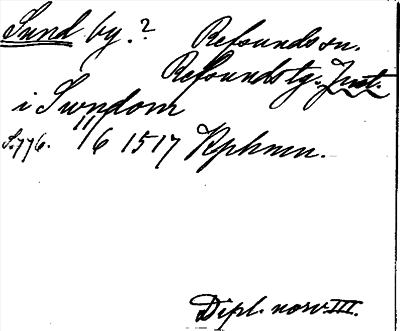 Sund by.? Refsunds sn.
Refsunds tg. Jmt.
i Swndom
S. 776. 11/6 1517 Kphmn.
Dipl. norv. III.